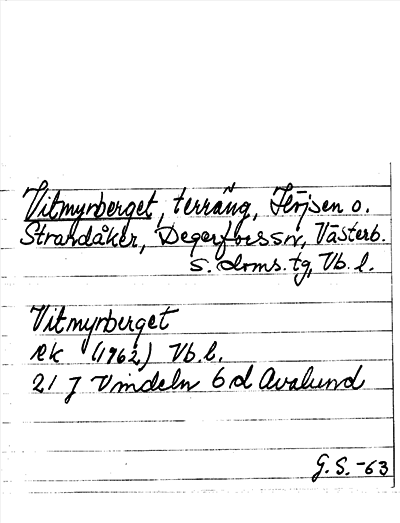 Vitmyrberget, terräng, Höjsen o.
Strandåker, Degerforssn, Västerb.
s. doms. tg, Vb. l.
Vitmyrberget
ek (1962) Vb. l.
21 J Vindeln 6d Avalund
G. S. -63